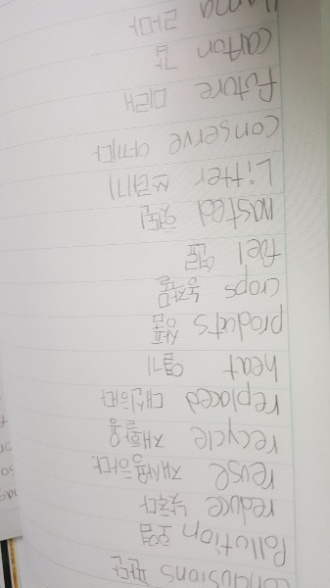 clusions 판단
Pollution 오염
reduce 낮추다
reuse 재사용하다
recycle 재활용
replaced 대신하다
heat 열기
products 상품
crops 농작물
fuel 연료
wasted 헛된
Litter 쓰레기
conserve 아끼다
future 미래
carton 갑
llama 라마